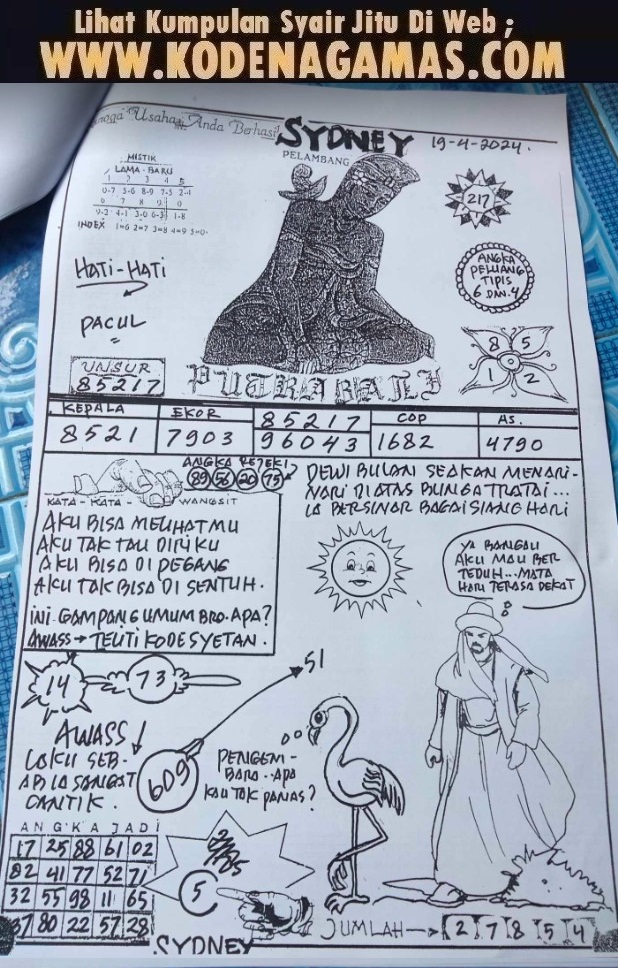 Lihat Kumpulan Syair Jitu Di Web ;
WWW.KODENAGAMAS.COM
Usaha Anda Berhasil
SYDNEY
19-4-2024.
PELAMBANG
MISTIK
LAMA - BARU
1 2 3 4 5
0-7 5-6 8-9 7-5 2-1
6 7 8 9 0
9-2 4-1 3-0 6-3 1-8
INDEX 1=6 2=7 3=8 4=9 5=0
217
HATI-HATI
PACUL
ANGKA
PELUANG
TIPIS
6 DAN 4
8 5
1 2
UNSUR
85217
PUTRA BALI
KEPALA
8521
EKOR
7903
85217
96043
COP
1682
AS.
4790
ANGKA REJEKI
89 56 20 75
KATA - KATA - WANGSIT
DEWI BULAN SEAKAN MENARI-
NARI DIATAS BUNGA TRATAI...
IA BERSINAR BAGAI SIANG HARI
AKU BISA MELIHATMU
AKU TAK TAU DIRIKU
AKU BISA DI PEGANG
AKU TAK BISA DI SENTUH.
INI GAMPANG UMUM BRO. APA?
AWASS → TELITI KODE SYETAN.
YA BANGAU
AKU MAU BER
TEDUH...MATA
HARI TERASA DEKAT
14
73
51
609
AWASS!
LAKU SEB-
AB IA SANGAT
CANTIK.
PENGEM-
BARA - APA
KAU TAK PANAS?
ANGKA JADI
17 25 88 61 02
82 41 77 52 71
32 55 98 11 65
37 80 22 57 28
85
5
SYDNEY
JUMLAH → 2 7 8 5 4